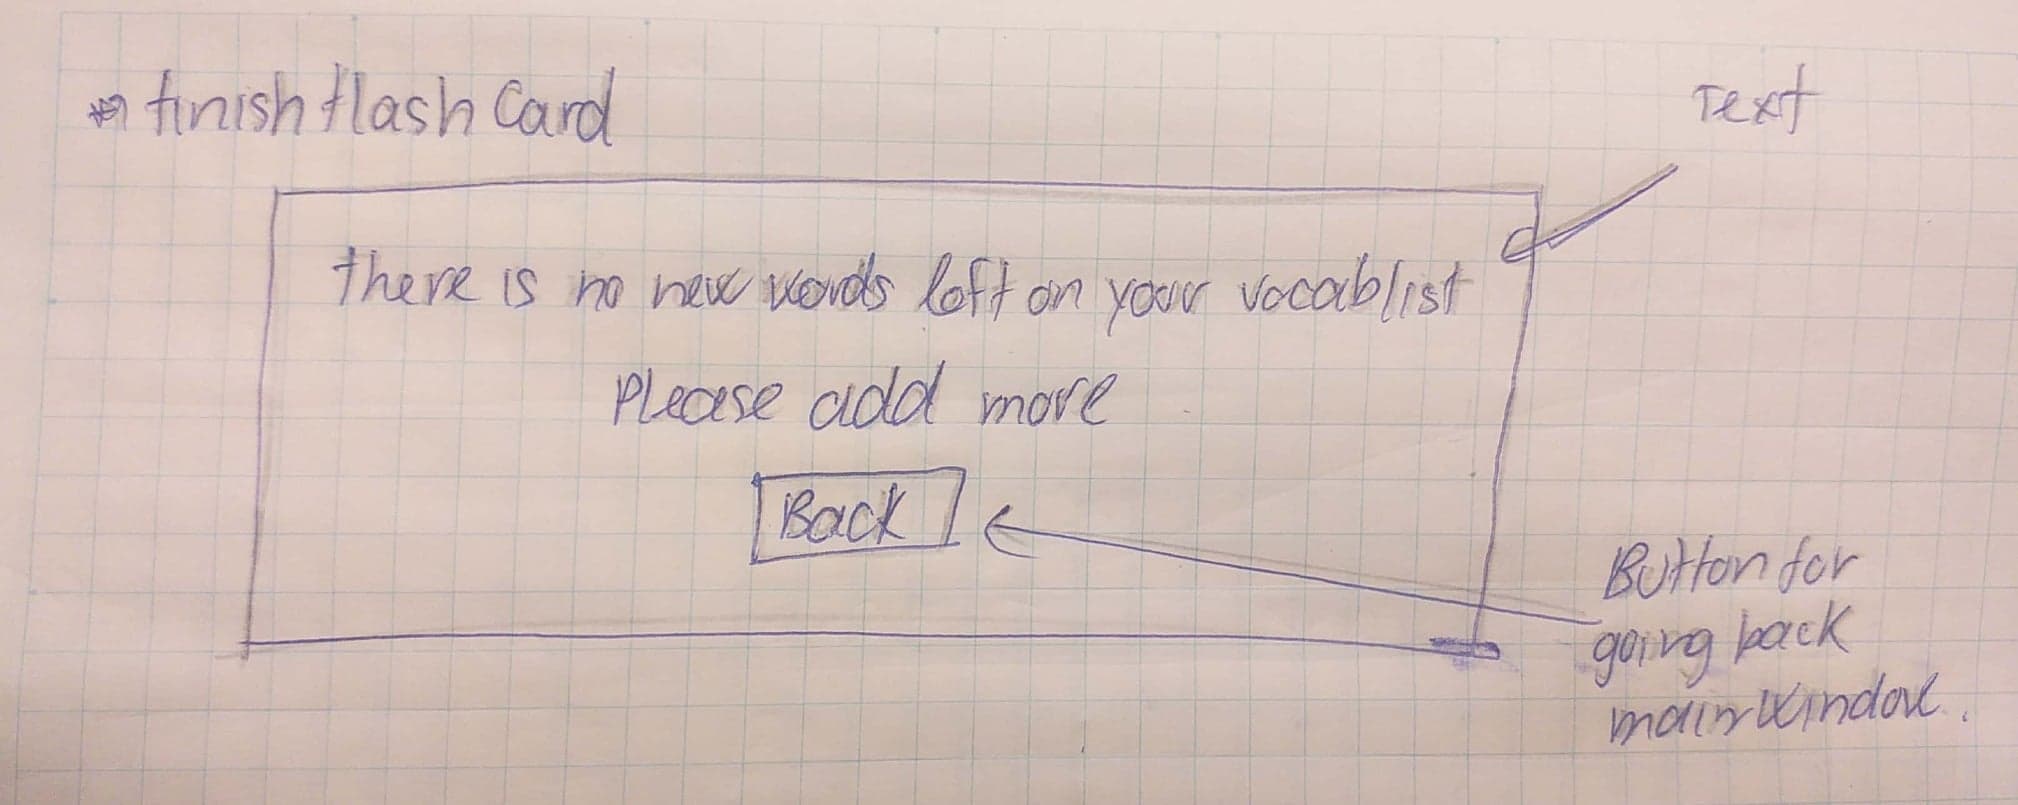 finish flash Card
Text
there is no new words left on your vocablist
Please add more
Back
Button for
going back
main window.